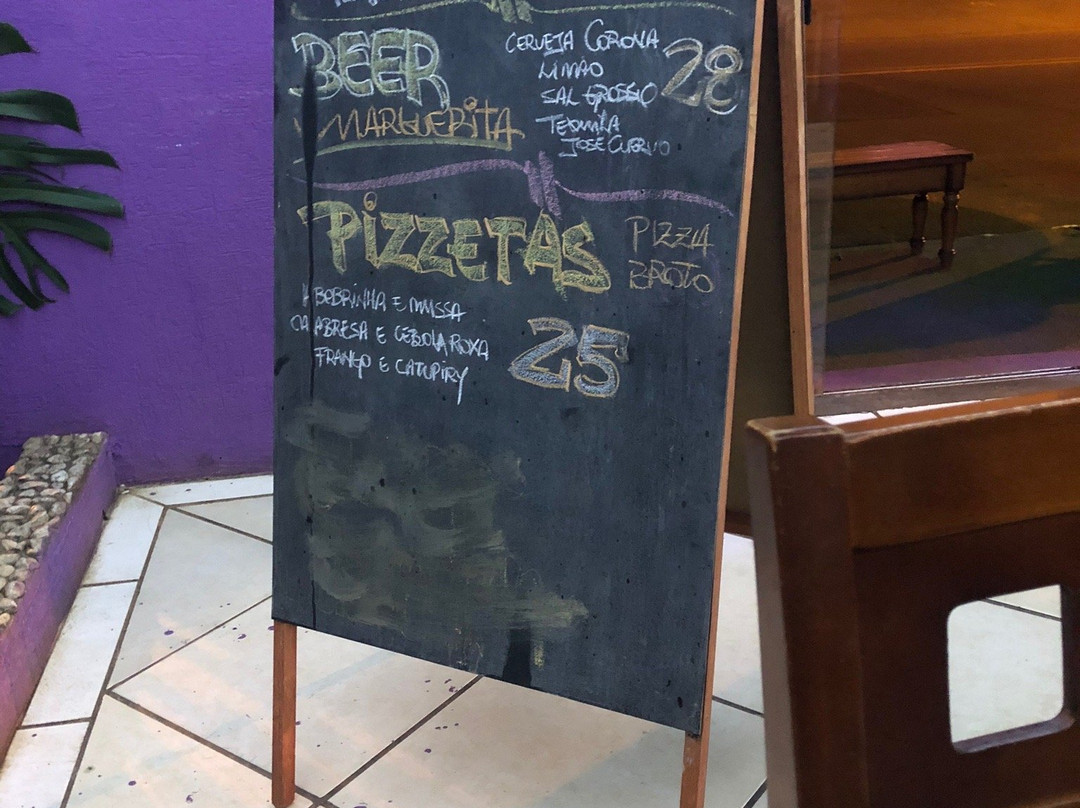 BEER
MARGUERITA
CERVEJA CORONA
LIMÃO
SAL GROSSO
TEQUILA
JOSE CUERVO
28
PIZZETAS
PIZZA
BROTO
ABOBRINHA E MUSSA
CALABRESA E CEBOLA ROXA
FRANGO E CATUPIRY
25